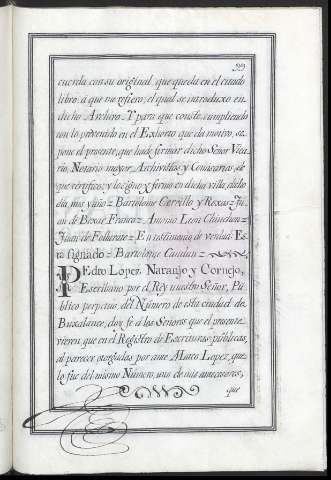 99
cuerda con su original, que queda en el citado
libro, á que me refiero; el qual se introduxo en
dicho Archivo. Y para que conste, cumpliendo
con lo prevenido en el Exhorto que da motivo, se
pone el presente, que ha de firmar dicho Señor Vica-
rio, Notario mayor, Archivistas y Comisarios,
que y los signo y firmo en dicha villa, dicho
dia mes y año = Bartolomé Carrillo y Rexas = Ju-
an de Bexar Franco = Antonio Leon
Juan de = En testimonio de verdad: Es-
tá signado = Bartolomé =
PEdro Lopez Naranjo y Cornejo,
Escribano por el Rey nuestro Señor, Pu-
blico perpetuo, del Número de esta ciudad de
Buxalance, doy fe á los Señores que el presente
vieren, que en el Registro de Escrituras públicas,
al parecer otorgadas por ante Mateo Lopez, que
lo fue del mismo Número, uno de mis antecesores,
que